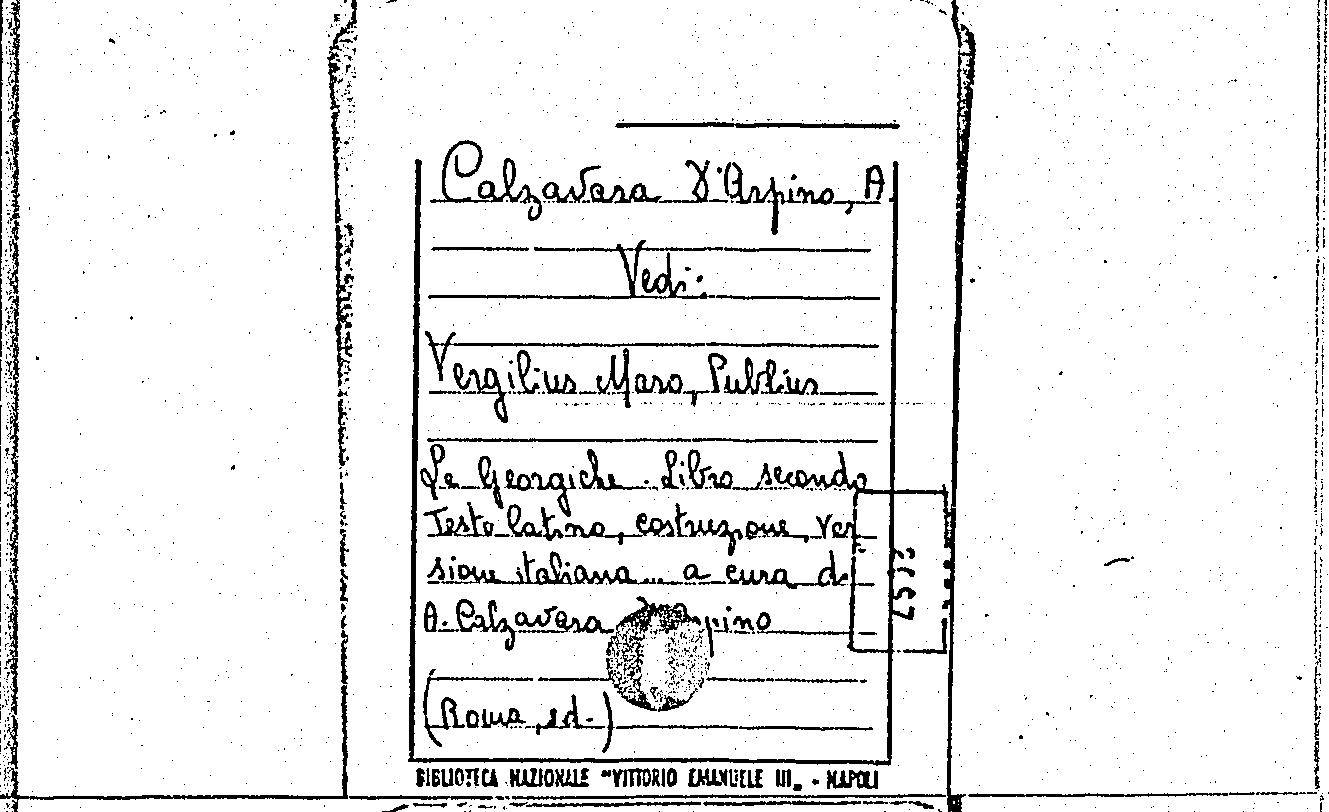 Calzavara D'Arpino, A
Vedi:
Vergilius Maro, Publius
Le Georgiche. Libro secondo
Testo latino, costruzione, ver
sione italiana... a cura di
A. Calzavara
(Roma, sd.)
BIBLIOTECA NAZIONALE "VITTORIO EMANUELE III„ - NAPOLI